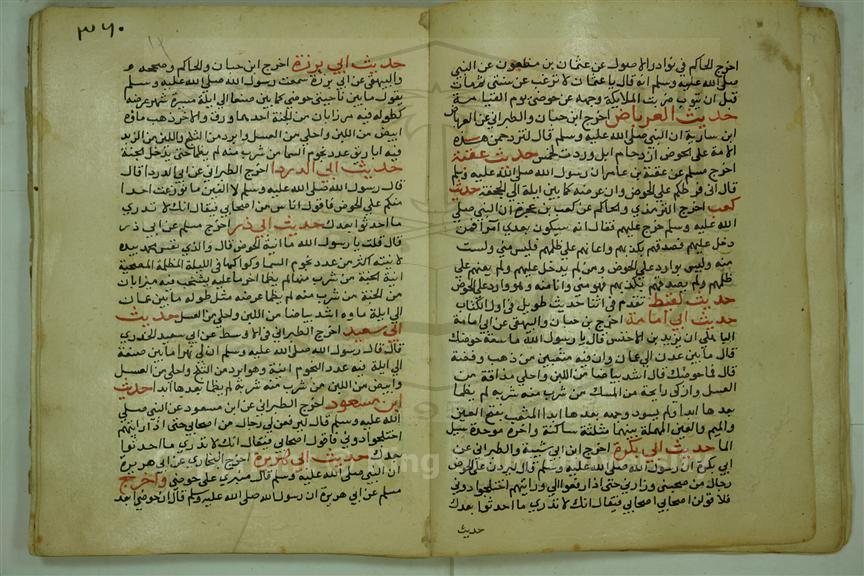 اخرج الحاكم في نوادر الاصول عن عثمان بن مظعون عن النبي
صلى الله عليه وسلم انه قال يا عثمان لا ترغب عن سنتي فمن مات
قبل ان يتوب ضربت الملايكة وجهه عن حوضي يوم القيامة
حديث العرباض اخرج ابن حبان والطبراني عن العرباض
ابن سارية ان النبي صلى الله عليه وسلم قال لتزدحمن هذه
الامة على الحوض ازدحام ابل وردت لخمس حديث عقبة
اخرج مسلم عن عقبة بن عامر ان رسول الله صلى الله عليه وسلم
قال اني فرطكم على الحوض وان عرضه كما بين ايلة الى الجحفة حديث
كعب اخرج الترمذي والحاكم عن كعب بن عجرة ان النبي صلى
الله عليه وسلم خرج عليهم فقال انه سيكون بعدي امرا فمن
دخل عليهم فصدقهم بكذبهم واعانهم على ظلمهم فليس مني ولست
منه وليس بوارد على الحوض ومن لم يدخل عليهم ولم يعنهم على
ظلمهم ولم يصدقهم بكذبهم فهو مني وانا منه وهو وارد على الحوض
حديث لقيط تقدم في اثنا حديث طويل في اول الكتاب
حديث ابي امامة اخرج بن حبان والبيهقي عن ابي امامة
الباهلي ان يزيد بن الاخنس قال يا رسول الله ما سعة حوضك
قال ما بين عدن الى عمان وان فيه مثعبين من ذهب وفضة
قال فما حوضك قال اشد بياضا من اللبن واحلى مذاقة من
العسل وازكى رايحة من المسك من شرب منه شربة لم يظما
بعدها ابدا ولم يسود وجهه بعدها ابدا المثعب بفتح العين
والميم والعين المهملة بينهما مثلثة ساكنة واخره موحدة مسيل
الما حديث ابي بكرة اخرج ابن ابي شيبة والطبراني عن
ابي بكرة ان رسول الله صلى الله عليه وسلم قال ليردن على الحوض
رجال من صحبني وراني حتى اذا رفعوا الي ورايتهم اختلجوا دوني
فلاقولن اصحابي اصحابي فيقال انك لا تدري ما احدثوا بعدك
حديث
٣٦٠
حديث ابي برزة اخرج ابن حبان والحاكم وصححه و
والبيهقي عن ابي برزة سمعت رسول الله صلى الله عليه وسلم
يقول ما بين ناحيتي حوضي كما بين صنعا الى ايلة مسيرة شهر عرضه
كطوله فيه مرزابان من الجنة احدهما ورق والاخر ذهب ماؤه
ابيض من اللبن واحلى من العسل وابرد من الثلج والين من الزبد
فيه اباريق عدد نجوم السما من شرب منه لم يظما حتى يدخل الجنة
حديث ابي الدردا اخرج الطبراني عن ابي الدردا قال
قال رسول الله صلى الله عليه وسلم لا الفين ما نوزعت احدا
منكم على الحوض فاقول اناس من اصحابي فيقال انك لا تدري
ما احدثوا بعدك حديث ابي ذر اخرج مسلم عن ابي ذر
قال قلت يا رسول الله ما انية الحوض قال والذي نفس محمد بيده
لانيته اكثر من عدد نجوم السما وكواكبها في الليلة المظلمة المصحية
انية الجنة من شرب منها لم يظما اخر ما عليه يشخب فيه ميزابان
من الجنة من شرب منه لم يظما عرضه مثل طوله ما بين عمان
الى ايلة ماوه اشد بياضا من اللبن واحلى من العسل حديث
ابي سعيد اخرج الطبراني في الاوسط عن ابي سعيد الخدري
قال قال رسول الله صلى الله عليه وسلم ان لي نهرا ما بين صنعة
الى ايلة فيه عدد النجوم انية وهو ابرد من الثلج واحلى من العسل
وابيض من اللبن من شرب منه شربة لم يظما بعدها ابدا حديث
ابن مسعود اخرج الطبراني عن ابن مسعود عن النبي صلى
الله عليه وسلم قال ليرفعن لي رجال من اصحابي حتى اذا رايتهم
اختلجوا دوني فاقول اصحابي فيقال انك لا تدري ما احدثوا
بعدك حديث ابي هريرة اخرج البخاري عن ابي هريرة
ان النبي صلى الله عليه وسلم قال منبري على حوضي واخرج
مسلم عن ابي هريرة ان رسول الله صلى الله عليه وسلم قال ان حوضي ابعد